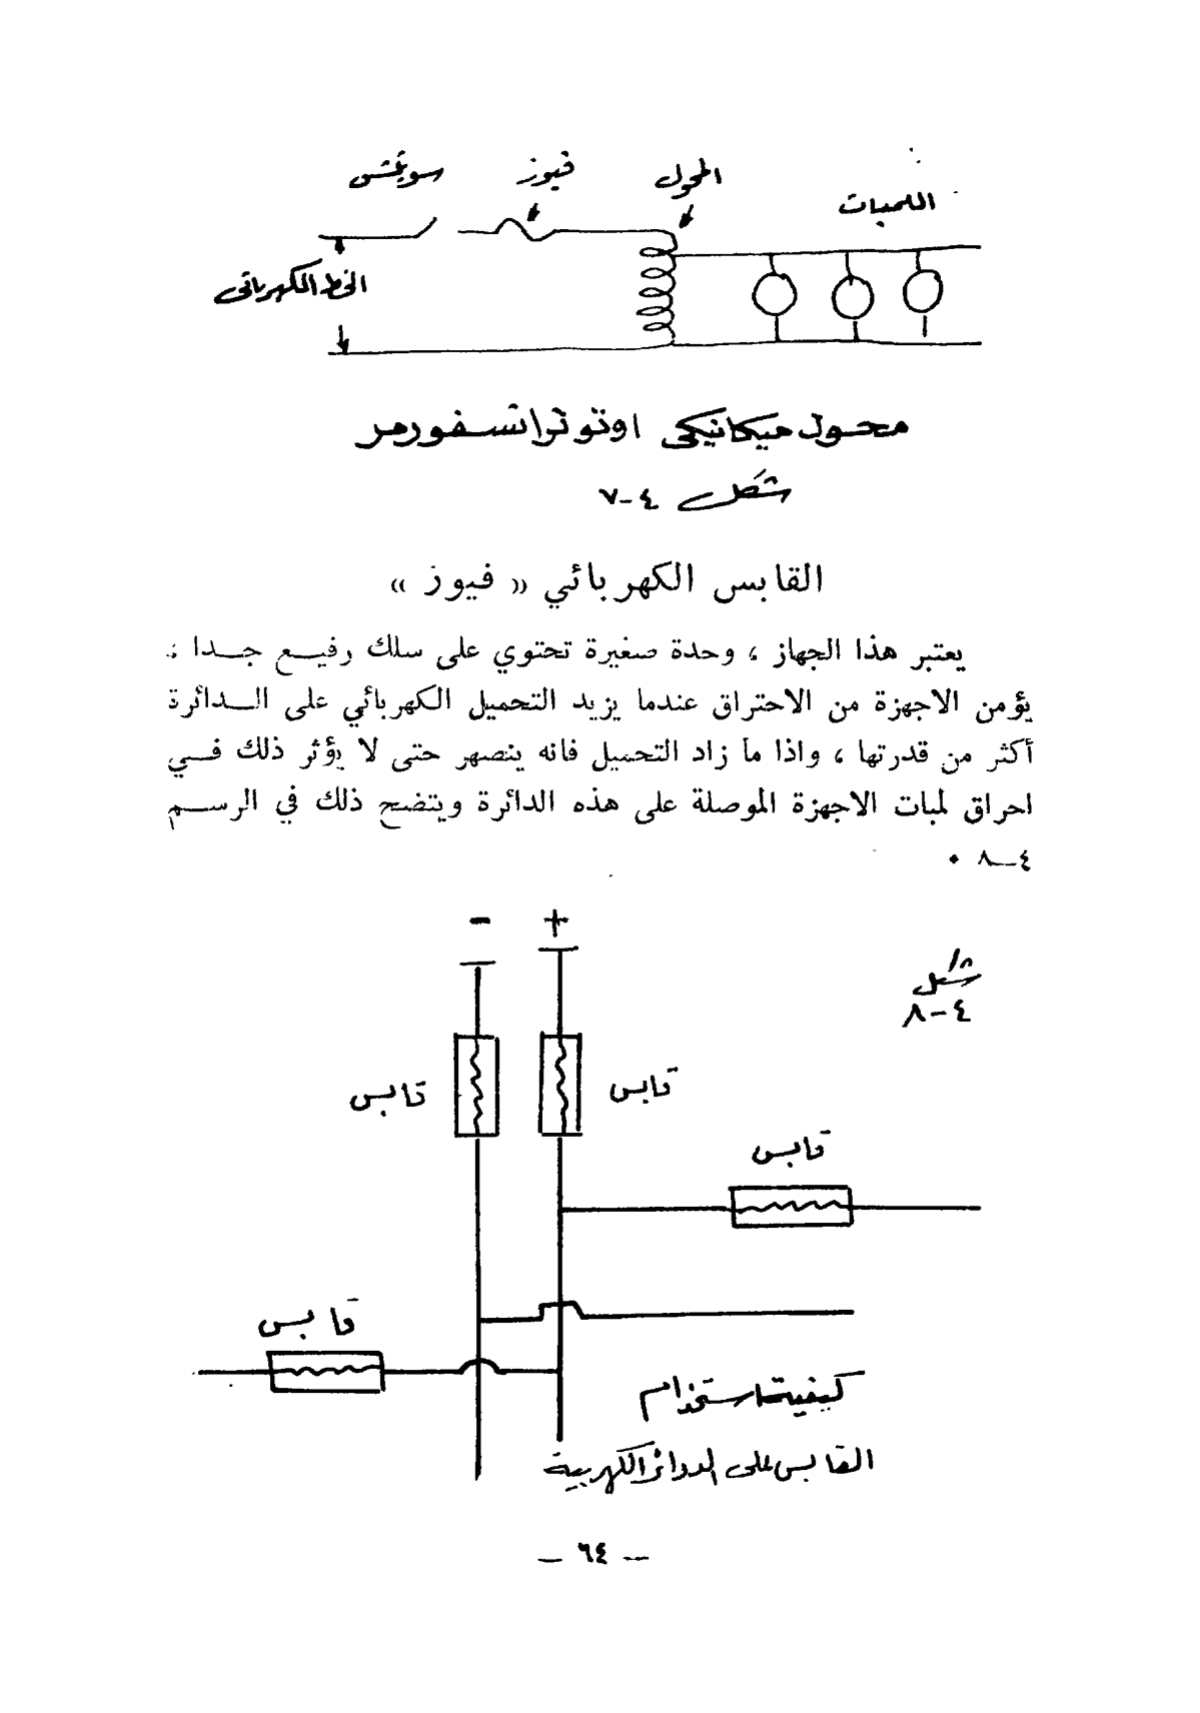 سويتش
فيوز
المحول
اللمبات
الخط الكهربائي
محول ميكانيكي اوتو ترانسفورمر
شكل ٤-٧
القابس الكهربائي « فيوز »
يعتبر هذا الجهاز ، وحدة صغيرة تحتوي على سلك رفيع جدا ،
يؤمن الاجهزة من الاحتراق عندما يزيد التحميل الكهربائي على الدائرة
أكثر من قدرتها ، واذا ما زاد التحميل فانه ينصهر حتى لا يؤثر ذلك في
احراق لمبات الاجهزة الموصلة على هذه الدائرة ويتضح ذلك في الرسم
٤-٨ •
- +
شكل
٤-٨
قابس
قابس
قابس
قابس
كيفية استخدام
القابس على الدوائر الكهربية
— ٦٤ —